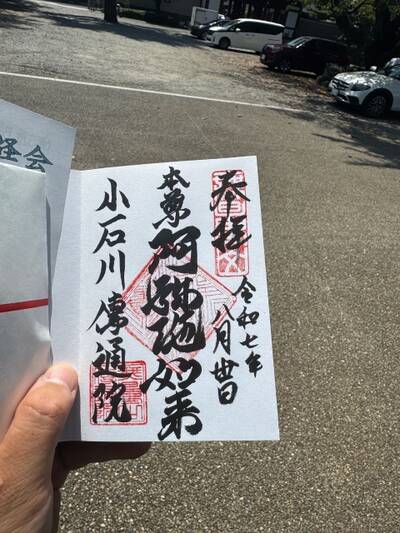 奉拝
令和七年
八月丗日
本尊
阿弥陀如来
小石川傳通院
経会